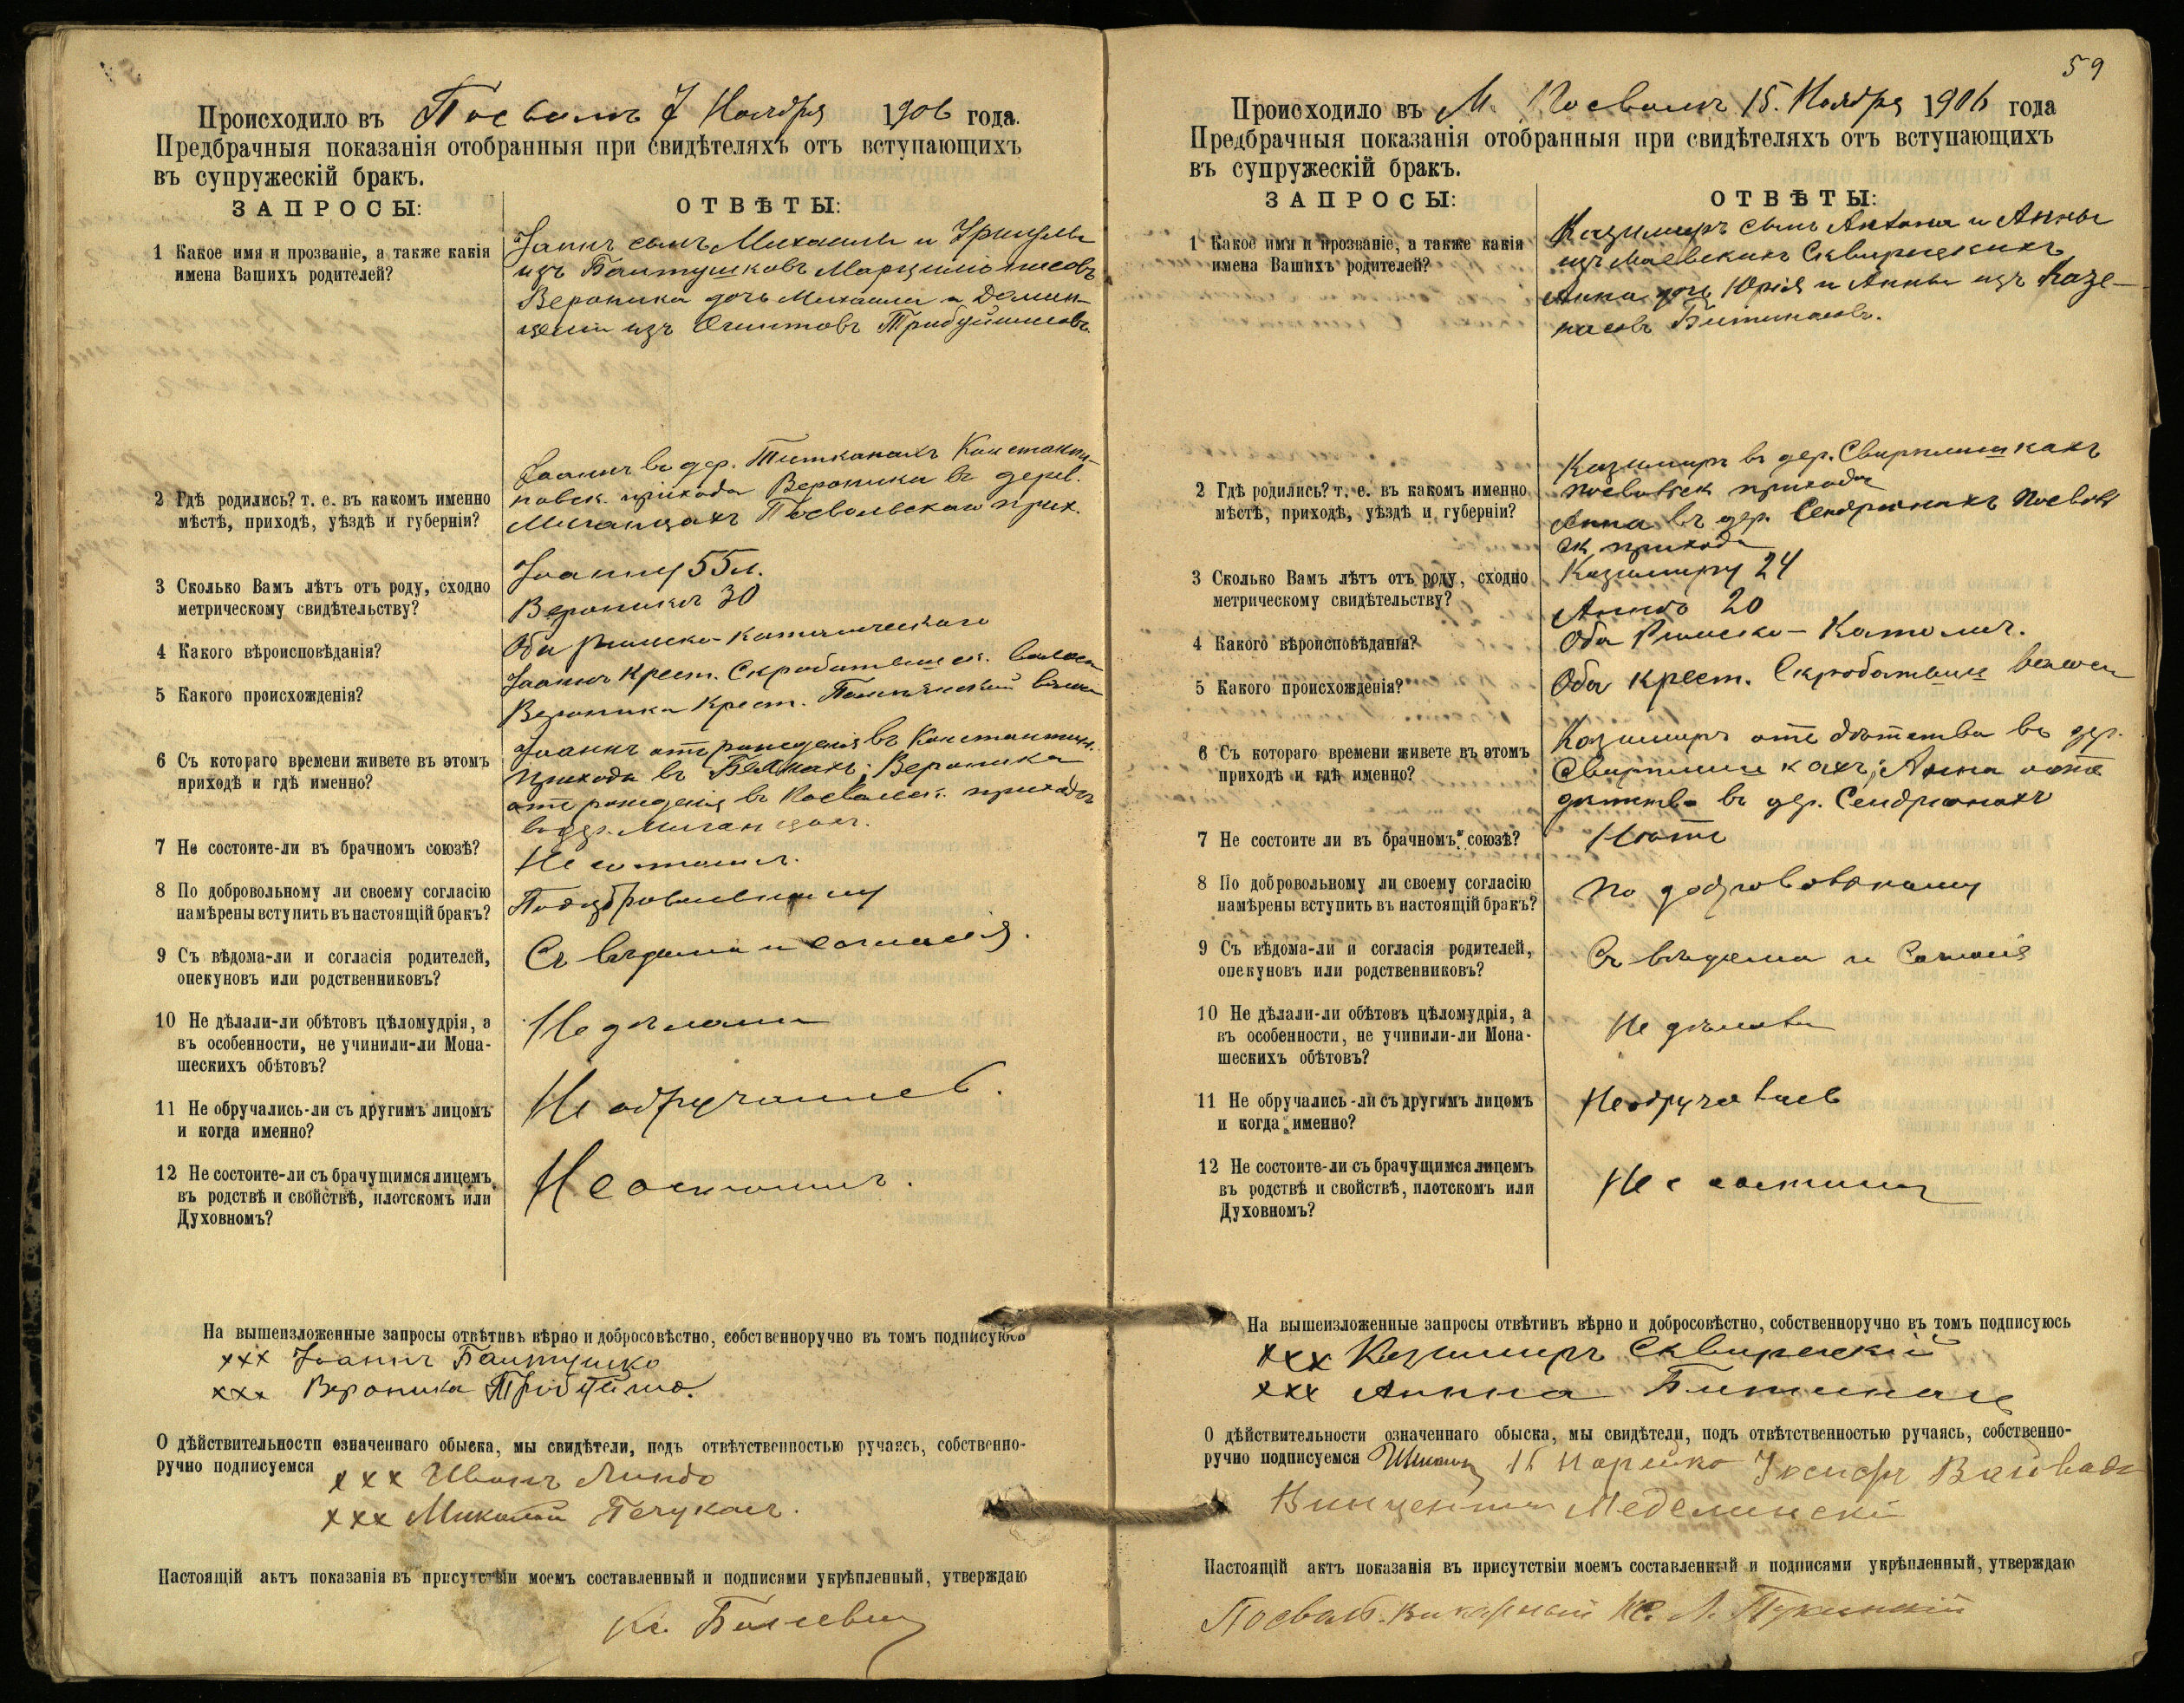 Происходило въ Посволь 7 Ноября 1906 года.
Предбрачныя показанія отобранныя при свидѣтеляхъ отъ вступающихъ
въ супружескій бракъ.
ЗАПРОСЫ:
ОТВѢТЫ:
1 Какое имя и прозваніе, а также какія
имена Вашихъ родителей?
сынъ Михаила и Уршули
изъ
Вероника дочь Михаила и Домин-
изъ
2 Гдѣ родились? т. е. въ какомъ именно
мѣстѣ, приходѣ, уѣздѣ и губерніи?
Іоаннъ въ дер. Титканахъ Константи-
новск. прихода Вероника въ дерев.
Миганцахъ Посвольскаго прих.
3 Сколько Вамъ лѣтъ отъ роду, сходно
метрическому свидѣтельству?
Іоанну 55 л.
Вероникѣ 30
4 Какого вѣроисповѣданія?
Оба Римско-Католическаго
5 Какого происхожденія?
Іоаннъ Крест. Скробатышск. волости
Вероника Крест.
6 Съ котораго времени живете въ этомъ
приходѣ и гдѣ именно?
Іоаннъ отъ рожденія въ Константин.
прихода въ Вероника
отъ рожденія въ Посвольск. приходѣ
въ дер. Миганцахъ.
7 Не состоите-ли въ брачномъ союзѣ?
Не состоимъ.
8 По добровольному ли своему согласію
намѣрены вступить въ настоящій бракъ?
По добровольному
9 Съ вѣдома-ли и согласія родителей,
опекуновъ или родственниковъ?
Съ вѣдома и согласія.
10 Не дѣлали-ли обѣтовъ цѣломудрія, а
въ особенности, не учинили-ли Мона-
шескихъ обѣтовъ?
Не дѣлали
11 Не обручались-ли съ другимъ лицомъ
и когда именно?
Не обручались.
12 Не состоите-ли съ брачущимся лицемъ
въ родствѣ и свойствѣ, плотскомъ или
Духовномъ?
Не состоимъ.
На вышеизложенные запросы отвѣтивъ вѣрно и добросовѣстно, собственноручно въ томъ подписуюсь
xxx Іоаннъ Балтушко
xxx Вероника
О дѣйствительности означеннаго обыска, мы свидѣтели, подъ отвѣтственностью ручаясь, собственно-
ручно подписуемся
xxx Иванъ Линдо
xxx Николай Печукасъ.
Настоящій актъ показанія въ присутствіи моемъ составленный и подписями укрѣпленный, утверждаю
Кс.
59
Происходило въ М. Посволь 15. Ноября 1906 года
Предбрачныя показанія отобранныя при свидѣтеляхъ отъ вступающихъ
въ супружескій бракъ.
ЗАПРОСЫ:
ОТВѢТЫ:
1 Какое имя и прозваніе, а также какія
имена Вашихъ родителей?
Казимиръ сынъ Антона и Анны
изъ Маевскихъ Сквирецкихъ
Анна дочь Юрія и Анны изъ Казе-
насовъ Битинасовъ.
2 Гдѣ родились? т. е. въ какомъ именно
мѣстѣ, приходѣ, уѣздѣ и губерніи?
Казимиръ въ дер. Свирплишкахъ
Посвольск прихода
Анна въ дер. Сендрюнахъ Посволь
ск прихода
3 Сколько Вамъ лѣтъ отъ роду, сходно
метрическому свидѣтельству?
Казимиру 24
Аннѣ 20
4 Какого вѣроисповѣданія?
Оба Римско-Католич.
5 Какого происхожденія?
Оба крест. Скробатышск волости
6 Съ котораго времени живете въ этомъ
приходѣ и гдѣ именно?
Казимиръ отъ дѣтства въ дер.
Свирплишкахъ; Анна отъ
дѣтства въ дер. Сендрюнахъ
7 Не состоите ли въ брачномъ союзѣ?
Нѣтъ
8 По добровольному ли своему согласію
намѣрены вступить въ настоящій бракъ?
По добровольному
9 Съ вѣдома-ли и согласія родителей,
опекуновъ или родственниковъ?
Съ вѣдома и согласія
10 Не дѣлали-ли обѣтовъ цѣломудрія, а
въ особенности, не учинили-ли Мона-
шескихъ обѣтовъ?
Не дѣлали
11 Не обручались-ли съ другимъ лицомъ
и когда именно?
Не обручались
12 Не состоите-ли съ брачущимся лицемъ
въ родствѣ и свойствѣ, плотскомъ или
Духовномъ?
Не состоимъ
На вышеизложенные запросы отвѣтивъ вѣрно и добросовѣстно, собственноручно въ томъ подписуюсь
xxx Казимиръ Сквирецкій
xxx Анна
О дѣйствительности означеннаго обыска, мы свидѣтели, подъ отвѣтственностью ручаясь, собственно-
ручно подписуемся
Винцентій Меделинскій
Настоящій актъ показанія въ присутствіи моемъ составленный и подписями укрѣпленный, утверждаю
Посвол. викарный Кс. Л.